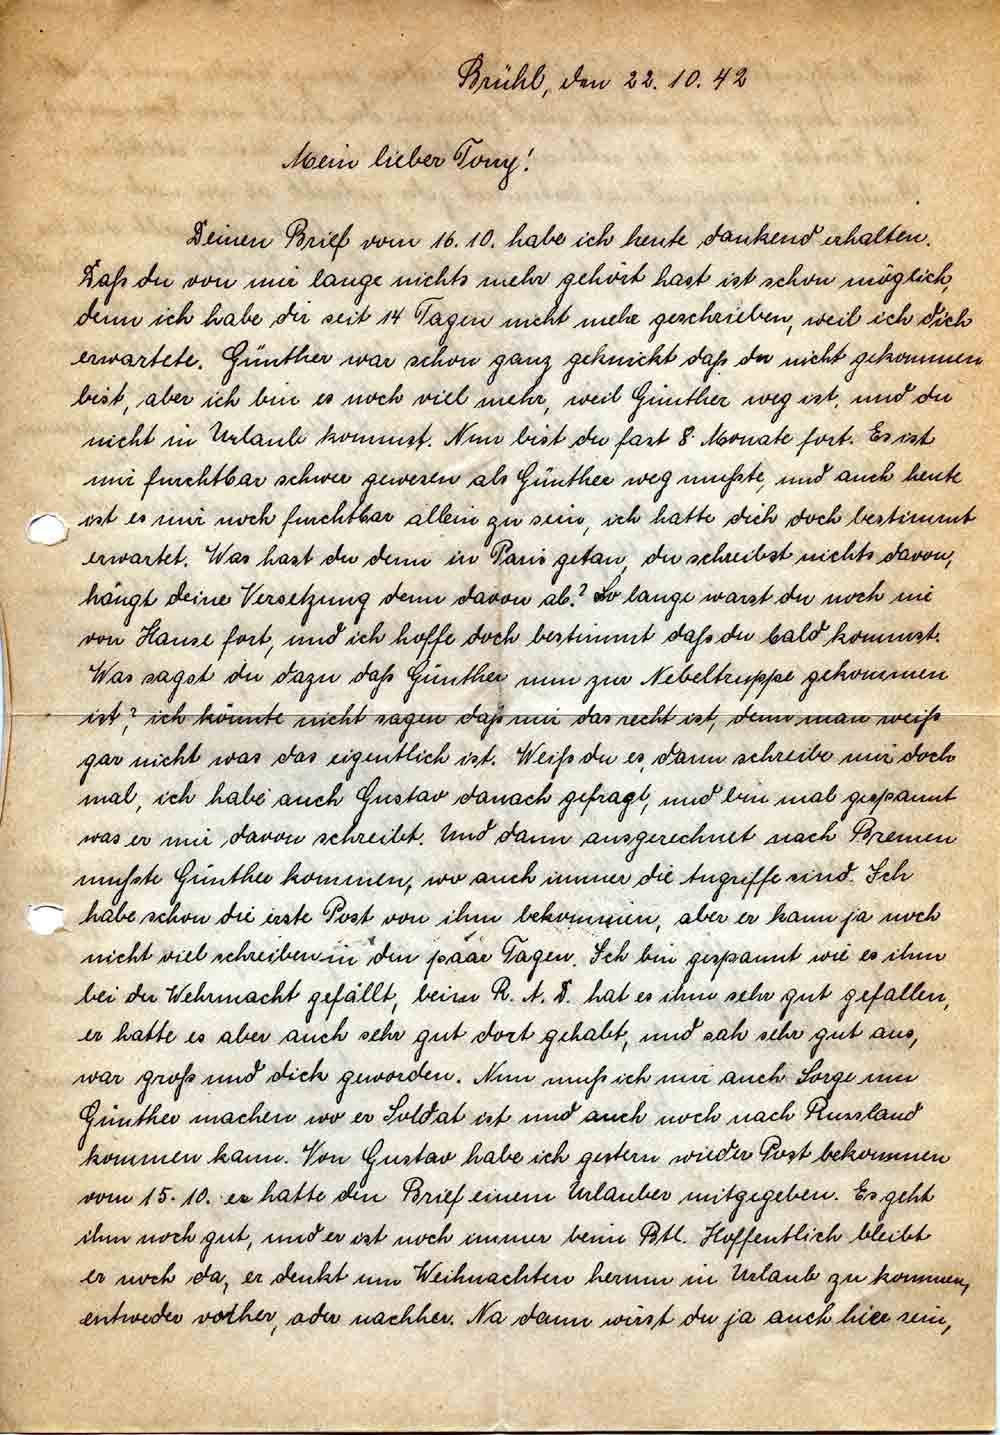 Brühl, den 22.10.42
Mein lieber Tony!
Deinen Brief vom 16.10. habe ich heute dankend erhalten.
Daß du von mir lange nichts mehr gehört hast ist schon möglich,
denn ich habe dir seit 14 Tagen nicht mehr geschrieben, weil ich dich
erwartete. Günther war schon ganz geknickt daß du nicht gekommen
bist, aber ich bin es noch viel mehr, weil Günther weg ist, und du
nicht in Urlaub kommst. Nun bist du fast 8 Monate fort. Es ist
mir furchtbar schwer gewesen als Günther weg mußte, und auch heute
ist es mir noch furchtbar allein zu sein, ich hatte dich doch bestimmt
erwartet. Was hast du denn in Paris getan, du schreibst nichts davon,
hängt deine Versetzung denn davon ab? So lange warst du noch nie
von Hause fort, und ich hoffe doch bestimmt daß du bald kommst.
Was sagst du dazu daß Günther nun zur Nebeltruppe gekommen
ist? ich könnte nicht sagen daß mir das recht ist, denn man weiß
gar nicht was das eigentlich ist. Weißt du es, dann schreibe mir doch
mal, ich habe auch Gustav danach gefragt, und bin mal gespannt
was er mir davon schreibt. Und dann ausgerechnet nach Bremen
mußte Günther kommen, wo auch immer die Angriffe sind. Ich
habe schon die erste Post von ihm bekommen, aber er kann ja noch
nicht viel schreiben in den paar Tagen. Ich bin gespannt wie es ihm
bei der Wehrmacht gefällt, beim R. A. D. hat es ihm sehr gut gefallen,
er hatte es aber auch sehr gut dort gehabt, und sah sehr gut aus,
war groß und dick geworden. Nun muß ich mir auch Sorge um
Günther machen wo er Soldat ist und auch noch nach Russland
kommen kann. Von Gustav habe ich gestern wieder Post bekommen
vom 15.10. er hatte den Brief einem Urlauber mitgegeben. Es geht
ihm noch gut, und er ist noch immer beim Btl. Hoffentlich bleibt
er noch da, er denkt um Weihnachten herum in Urlaub zu kommen,
entweder vorher, oder nachher. Na dann wirst du ja auch hier sein,